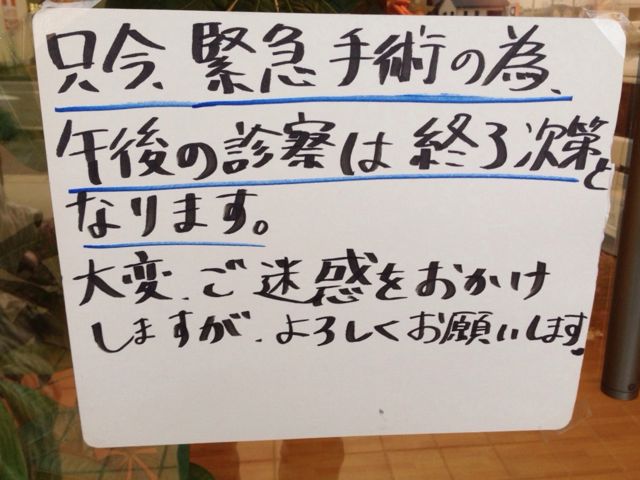 只今、緊急手術の為、
午後の診察は終了次第と
なります。
大変、ご迷惑をおかけ
しますが、よろしくお願いします。